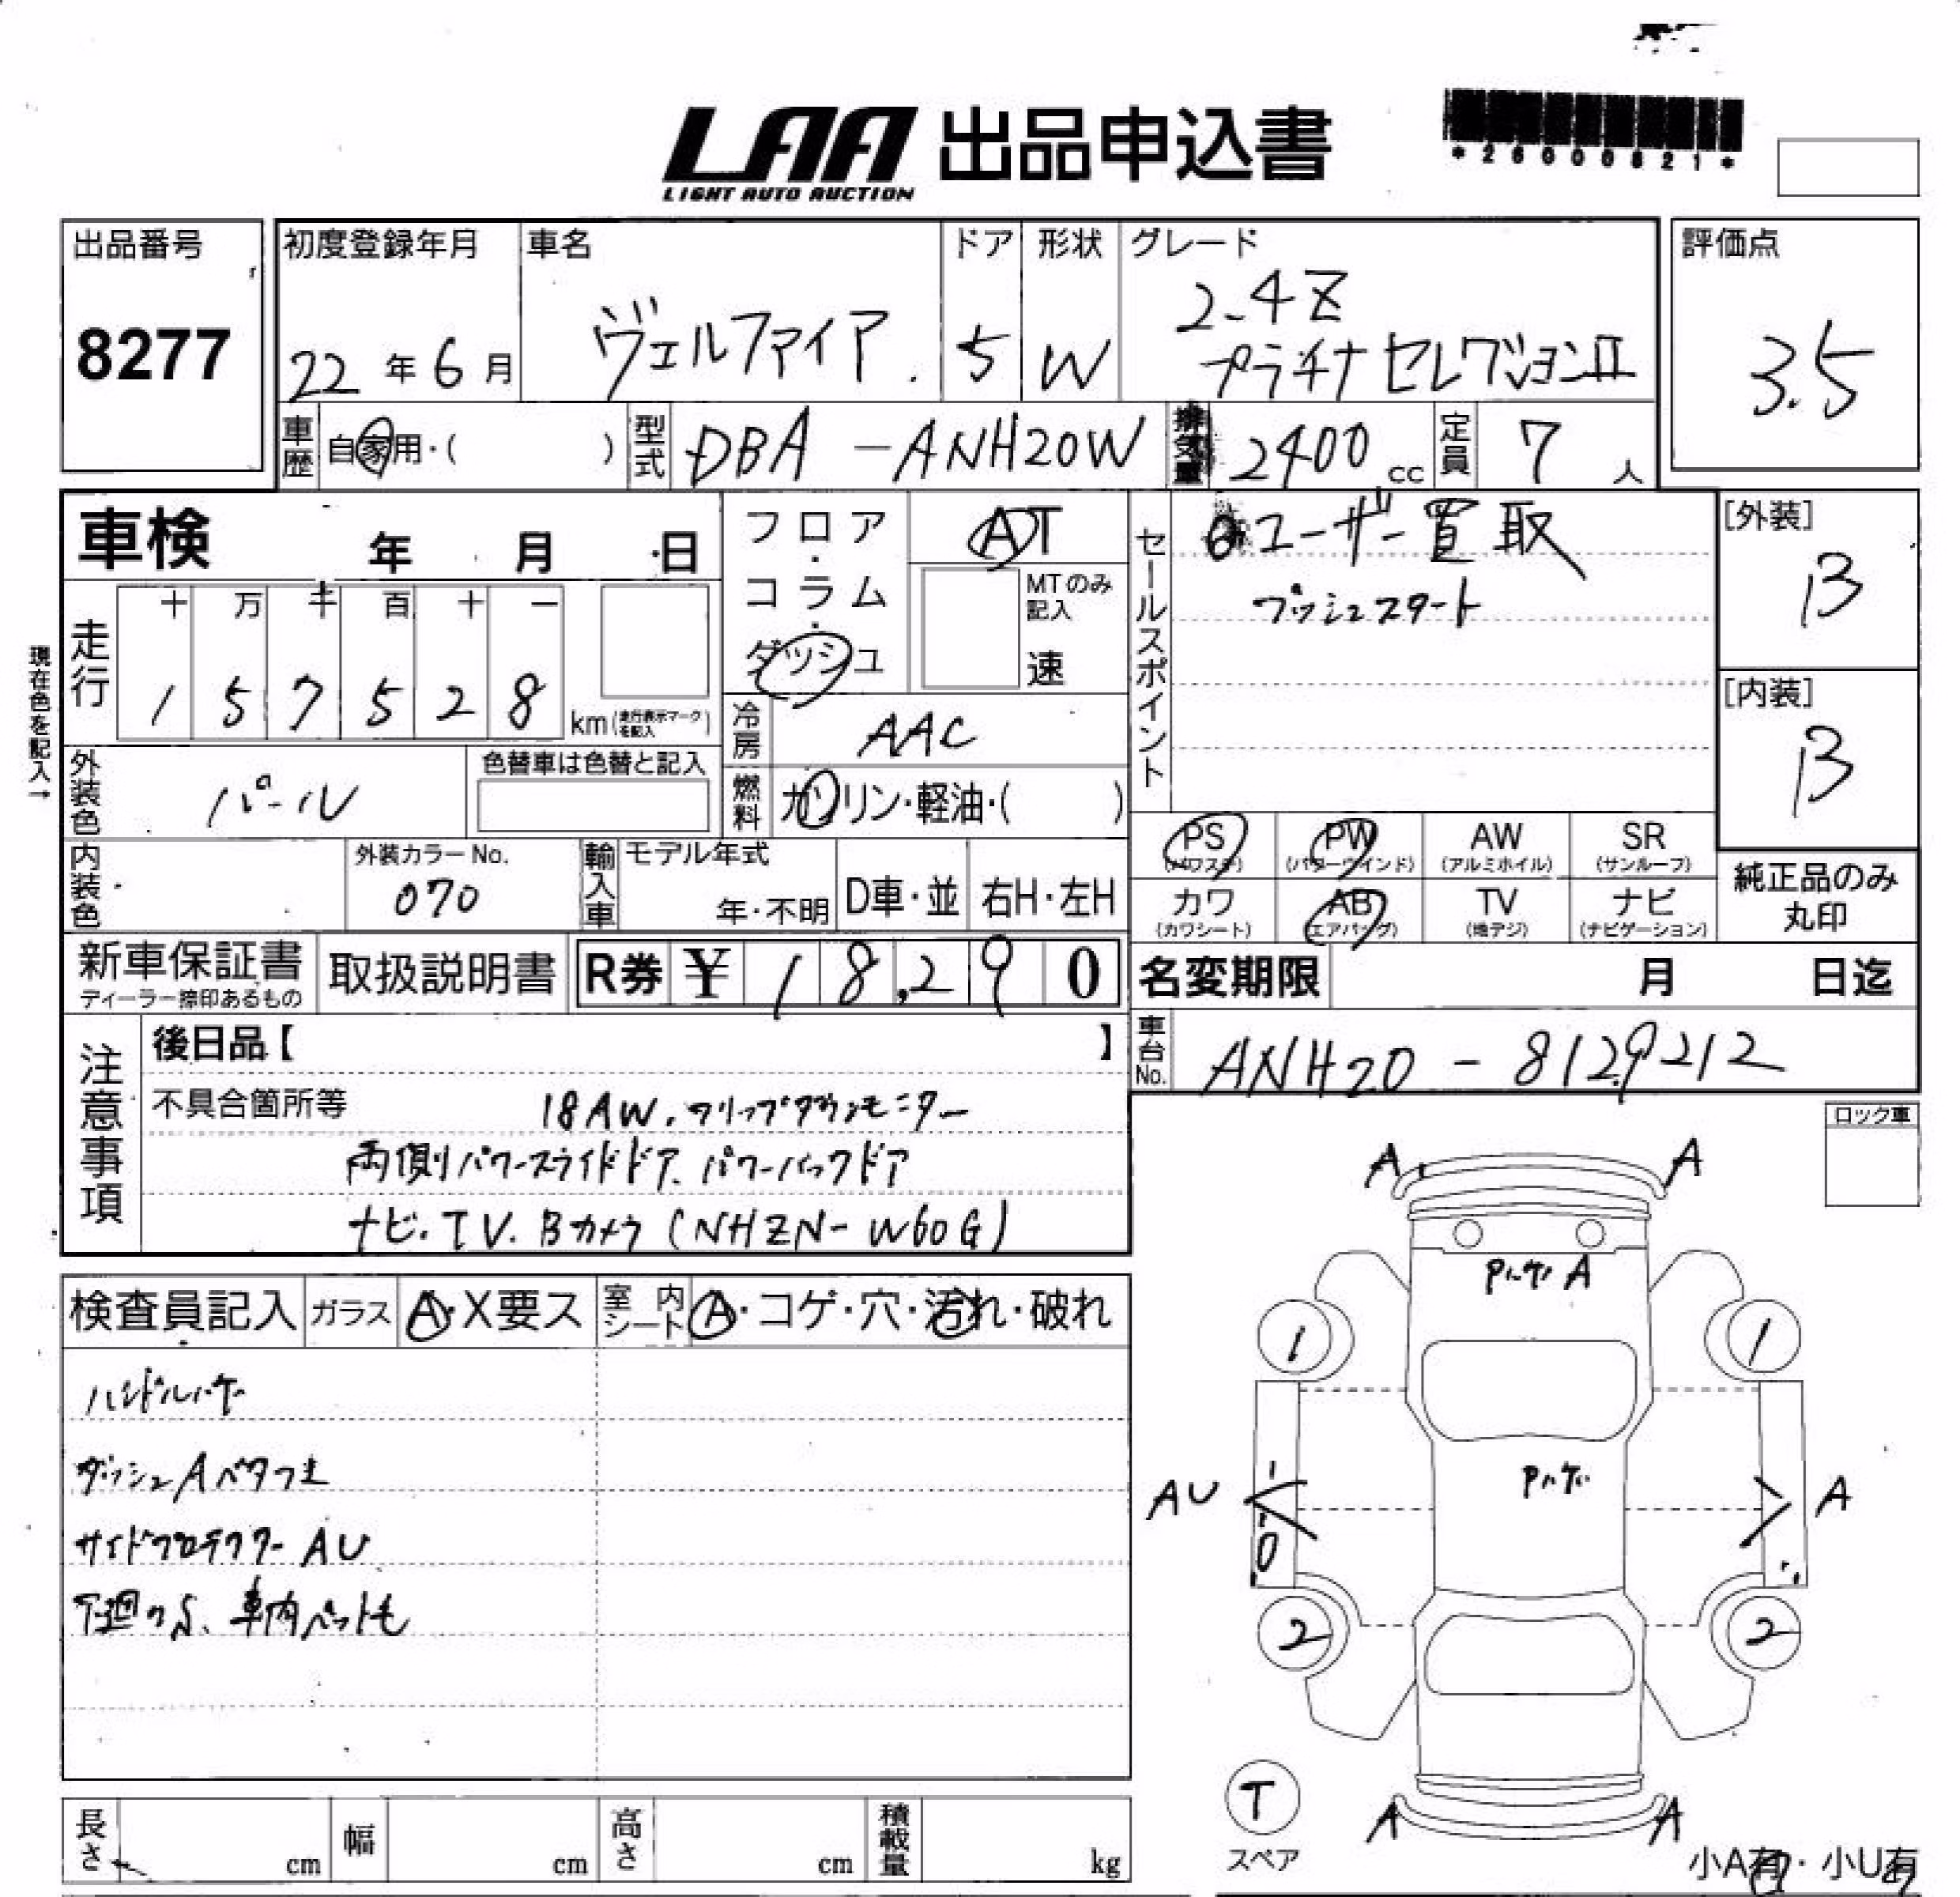 LAA 出品申込書
LIGHT AUTO AUCTION
*26000821*
出品番号
8277
初度登録年月
22年6月
車名
ヴェルファイア
ドア
5
形状
W
グレード
2.4Z
プラチナセレクションⅡ
評価点
3.5
車歴
自家用・( )
型式
DBA-ANH20W
排気量
2400cc
定員
7人
車検 年 月 日
現在色を記入→
走行
十 万 千 百 十 一
1 5 7 5 2 8 km(走行表示マークを記入)
フロア・コラム・ダッシュ
AT
MTのみ記入
速
冷房
AAC
燃料
ガソリン・軽油・( )
セールスポイント
ユーザー買取
プッシュスタート
[外装]
B
[内装]
B
外装色
パール
色替車は色替と記入
内装色
外装カラーNo.
070
輸入車
モデル年式
年・不明
D車・並
右H・左H
PS AW SR
PW
(パワーウインド) (アルミホイル) (サンルーフ)
カワ AB TV ナビ
(カワシート) (エアバッグ) (地デジ) (ナビゲーション)
純正品のみ
丸印
新車保証書
ディーラー捺印あるもの
取扱説明書
R券 ¥18,290
名変期限 月 日迄
車台No.
ANH20-8129212
注意事項
後日品【 】
不具合箇所等
18AW、フリップダウンモニター
両側パワースライドドア、パワーバックドア
ナビ.TV.Bカメラ(NHZN-W60G)
ロック車
検査員記入
ガラス
A・X要ス
室内シート
A・コゲ・穴・汚れ・破れ
ハンドルハゲ
ダッシュA ベタつき
サイドプロテクターAU
下廻りS、車内ペット毛
A A
Pハゲ A
1 1
Pハゲ
AU A
2 2
T
スペア
A A
小A有・小U有
長さ cm
幅 cm
高さ cm
積載量 kg